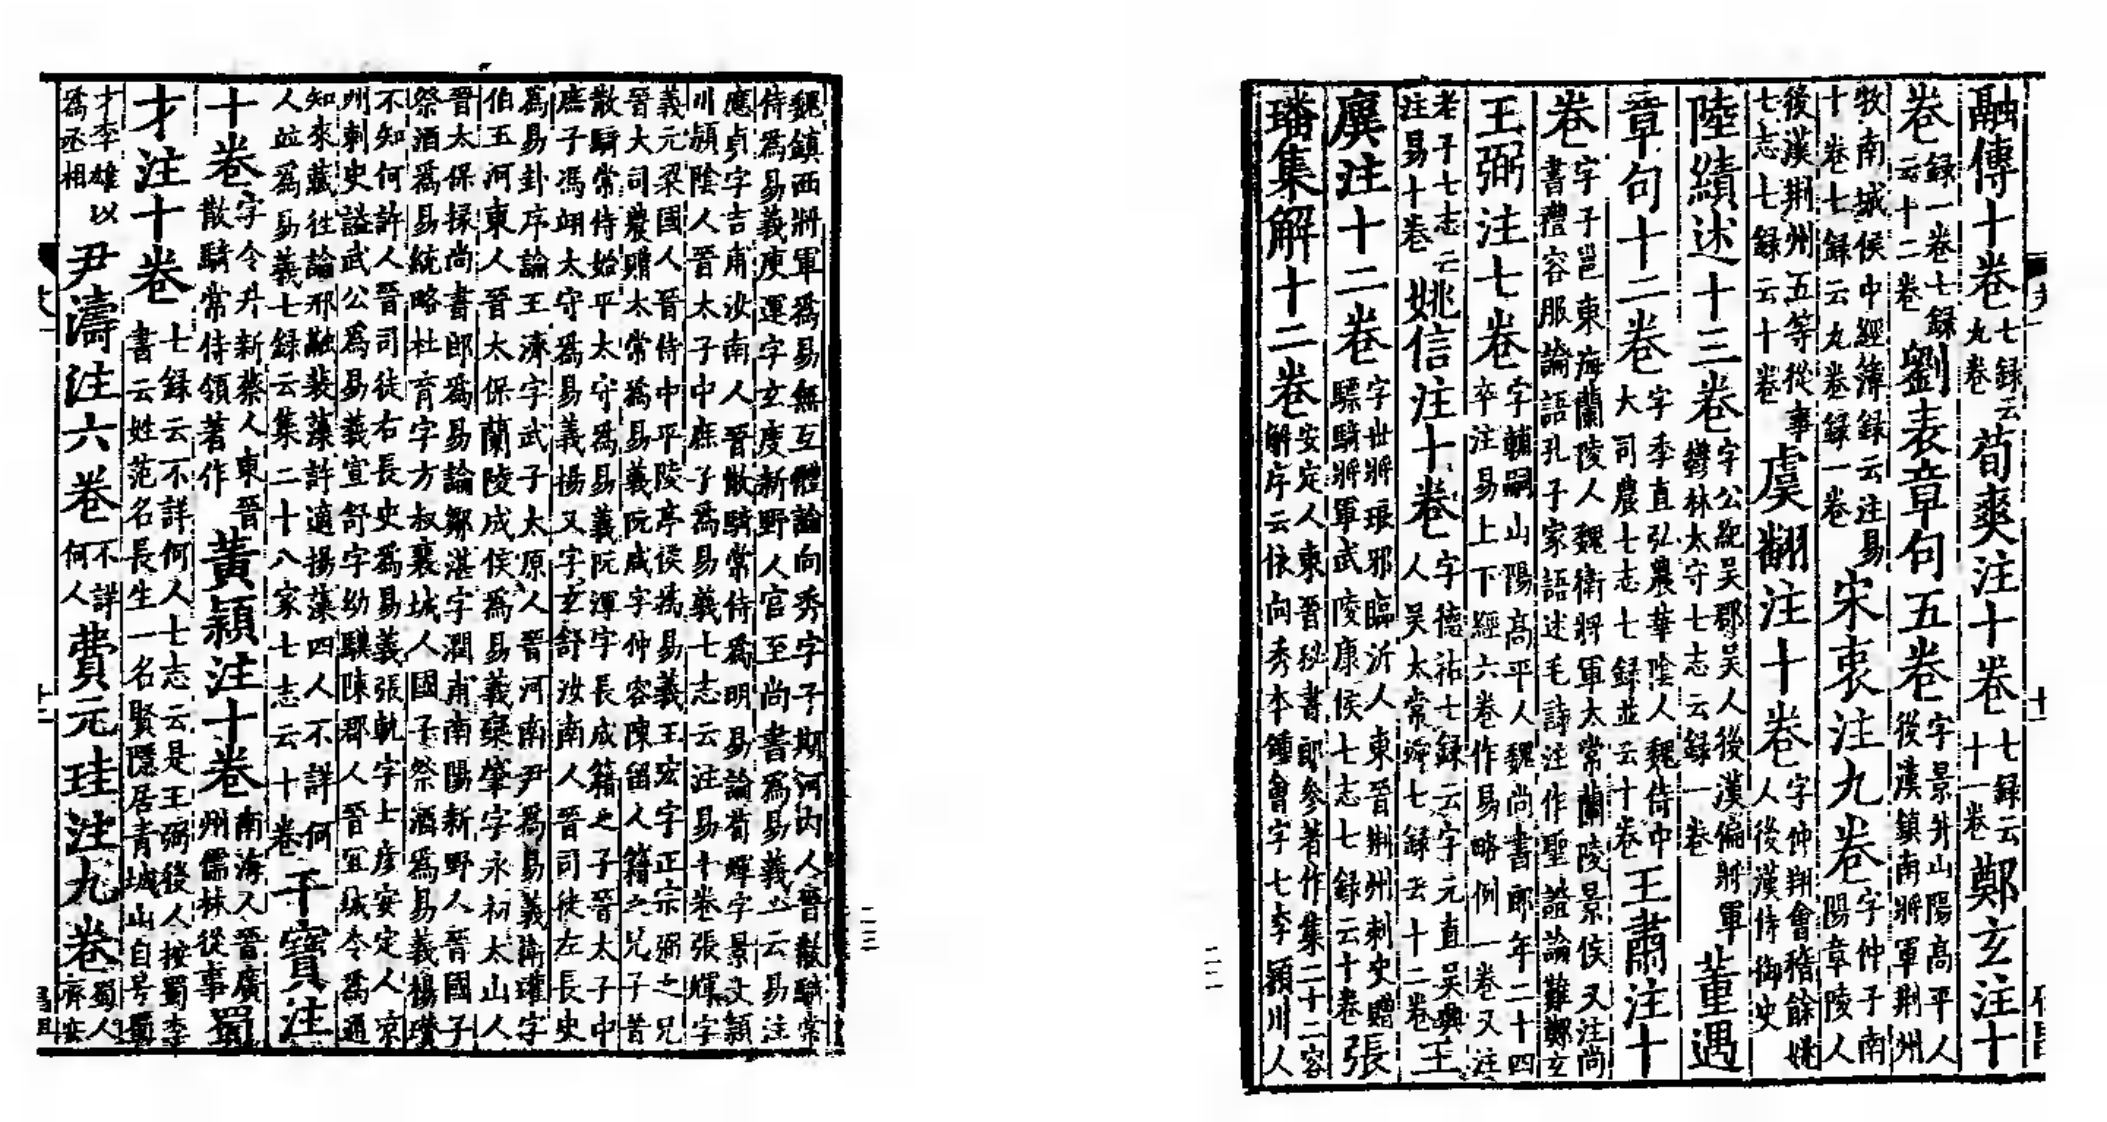 融傳十卷七録云九卷荀爽注十卷七録云十一卷鄭玄注十
卷録一卷七録云十二卷劉表章句五卷字景升山陽高平人後漢鎮南將軍荆州
牧南城侯中經簿録云注易十卷七録云九卷録一卷宋衷注九卷字仲子南陽章陵人
後漢荆州五等從事七志七録云十卷虞翻注十卷字仲翔會稽餘姚人後漢侍御史
陸績述十三卷字公紀吳郡吳人後漢偏將軍鬱林太守七志云録一卷董遇
章句十二卷字季直弘農華陰人魏侍中大司農七志七録並云十卷王肅注十
卷字子邕東海蘭陵人魏衛將軍太常蘭陵景侯又注尚書禮容服論語孔子家語述毛詩注作聖證論難鄭玄
王弼注七卷字輔嗣山陽高平人魏尚書郎年二十四卒注易上下經六卷作易略例一卷又注
老子七志云注易十卷姚信注十卷字德祐七録云字元直吳興人吳太常卿七録云十二卷王
廙注十二卷字世將琅邪臨沂人東晉荆州刺史贈驃騎將軍武陵康侯七志七録云十卷張
璠集解十二卷安定人東晉秘書郎參著作集二十二容解序云依向秀本鍾會字七季潁川人
魏鎮西將軍爲易無互體論向秀字子期河内人晉散騎常侍爲易義庾運字玄度新野人官至尚書爲易義一云易注
應貞字吉甫汝南人晉散騎常侍爲明易論荀煇字景文潁川潁陰人晉太子中庶子爲易義七志云注易十卷張輝字
義元梁國人晉侍中平陵亭侯爲易義王宏字正宗弼之兄晉大司農贈太常爲易義阮咸字仲容陳留人籍之兄子晉
散騎常侍始平太守爲易義阮渾字長成籍之子晉太子中庶子馮翊太守爲易義揚乂字玄舒汝南人晉司徒左長史
爲易卦序論王濟字武子太原人晉河南尹爲易義衛瓘字伯玉河東人晉太保蘭陵成侯爲易義欒肇字永初太山人
晉太保掾尚書郎爲易論鄒湛字潤甫南陽新野人晉國子祭酒爲易統略杜育字方叔襄城人國子祭酒爲易義楊瓚
不知何許人晉司徒右長史爲易義張軌字士彦安定人凉州刺史謚武公爲易義宣舒字幼驥陳郡人晉宜城令爲通
知來藏往論邢融裴藻許適揚藻四人不詳何人並爲易義七録云集二十八家七志云十卷干寶注
十卷字令升新蔡人東晉散騎常侍領著作黃穎注十卷南海人晉廣州儒林從事蜀
才注十卷七録云不詳何人七志云是王弼後人按蜀李書云姓范名長生一名賢隱居青城山自号蜀
才李雄以爲丞相尹濤注六卷不詳何人費元珪注九卷蜀人齊安